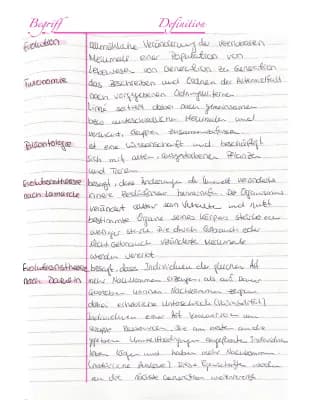 Begriff Definition
Evolution allmähliche Veränderung der vererbbaren
Merkmale einer Population von
Lebewesen von Generation zu Generation
Taxonomie das Beschreiben und Ordnen der Artenvielfalt
nach vorgegebenen Ordnungskriterien
Linné achtet dabei auch gemeinsamen
bzw. unterschiedlichen Merkmalen und
versucht, Gruppen zusammenzufassen
Paläontologie ist eine Wissenschaft und beschäftigt
sich mit alten, ausgestorbenen Pflanzen
und Tieren
Evolutionstheorie besagt, dass Änderungen der Umwelt veränderte
nach Lamarck innere Bedürfnisse hervorruft. Der Organismus
verändert daher sein Verhalten und nutzt
bestimmte Organe seines Körpers stärker oder
weniger stark. Die durch Gebrauch oder
Nichtgebrauch veränderte Merkmale
werden vererbt
Evolutionstheorie besagt, dass Individuen der gleichen Art
nach Darwin mehr Nachkommen erzeugen, als auf Dauer
Nachkommen zeigen
dabei erbliche Unterschiede (Variabilität)
Individuen einer Art konkurrieren um
Ressourcen. Die am besten an die
gegebenen Umweltbedingungen angepassten Individuen
und haben mehr Nachkommen
(natürliche Auslese). Diese Eigenschaften werden
an die nächste Generation weitervererbt